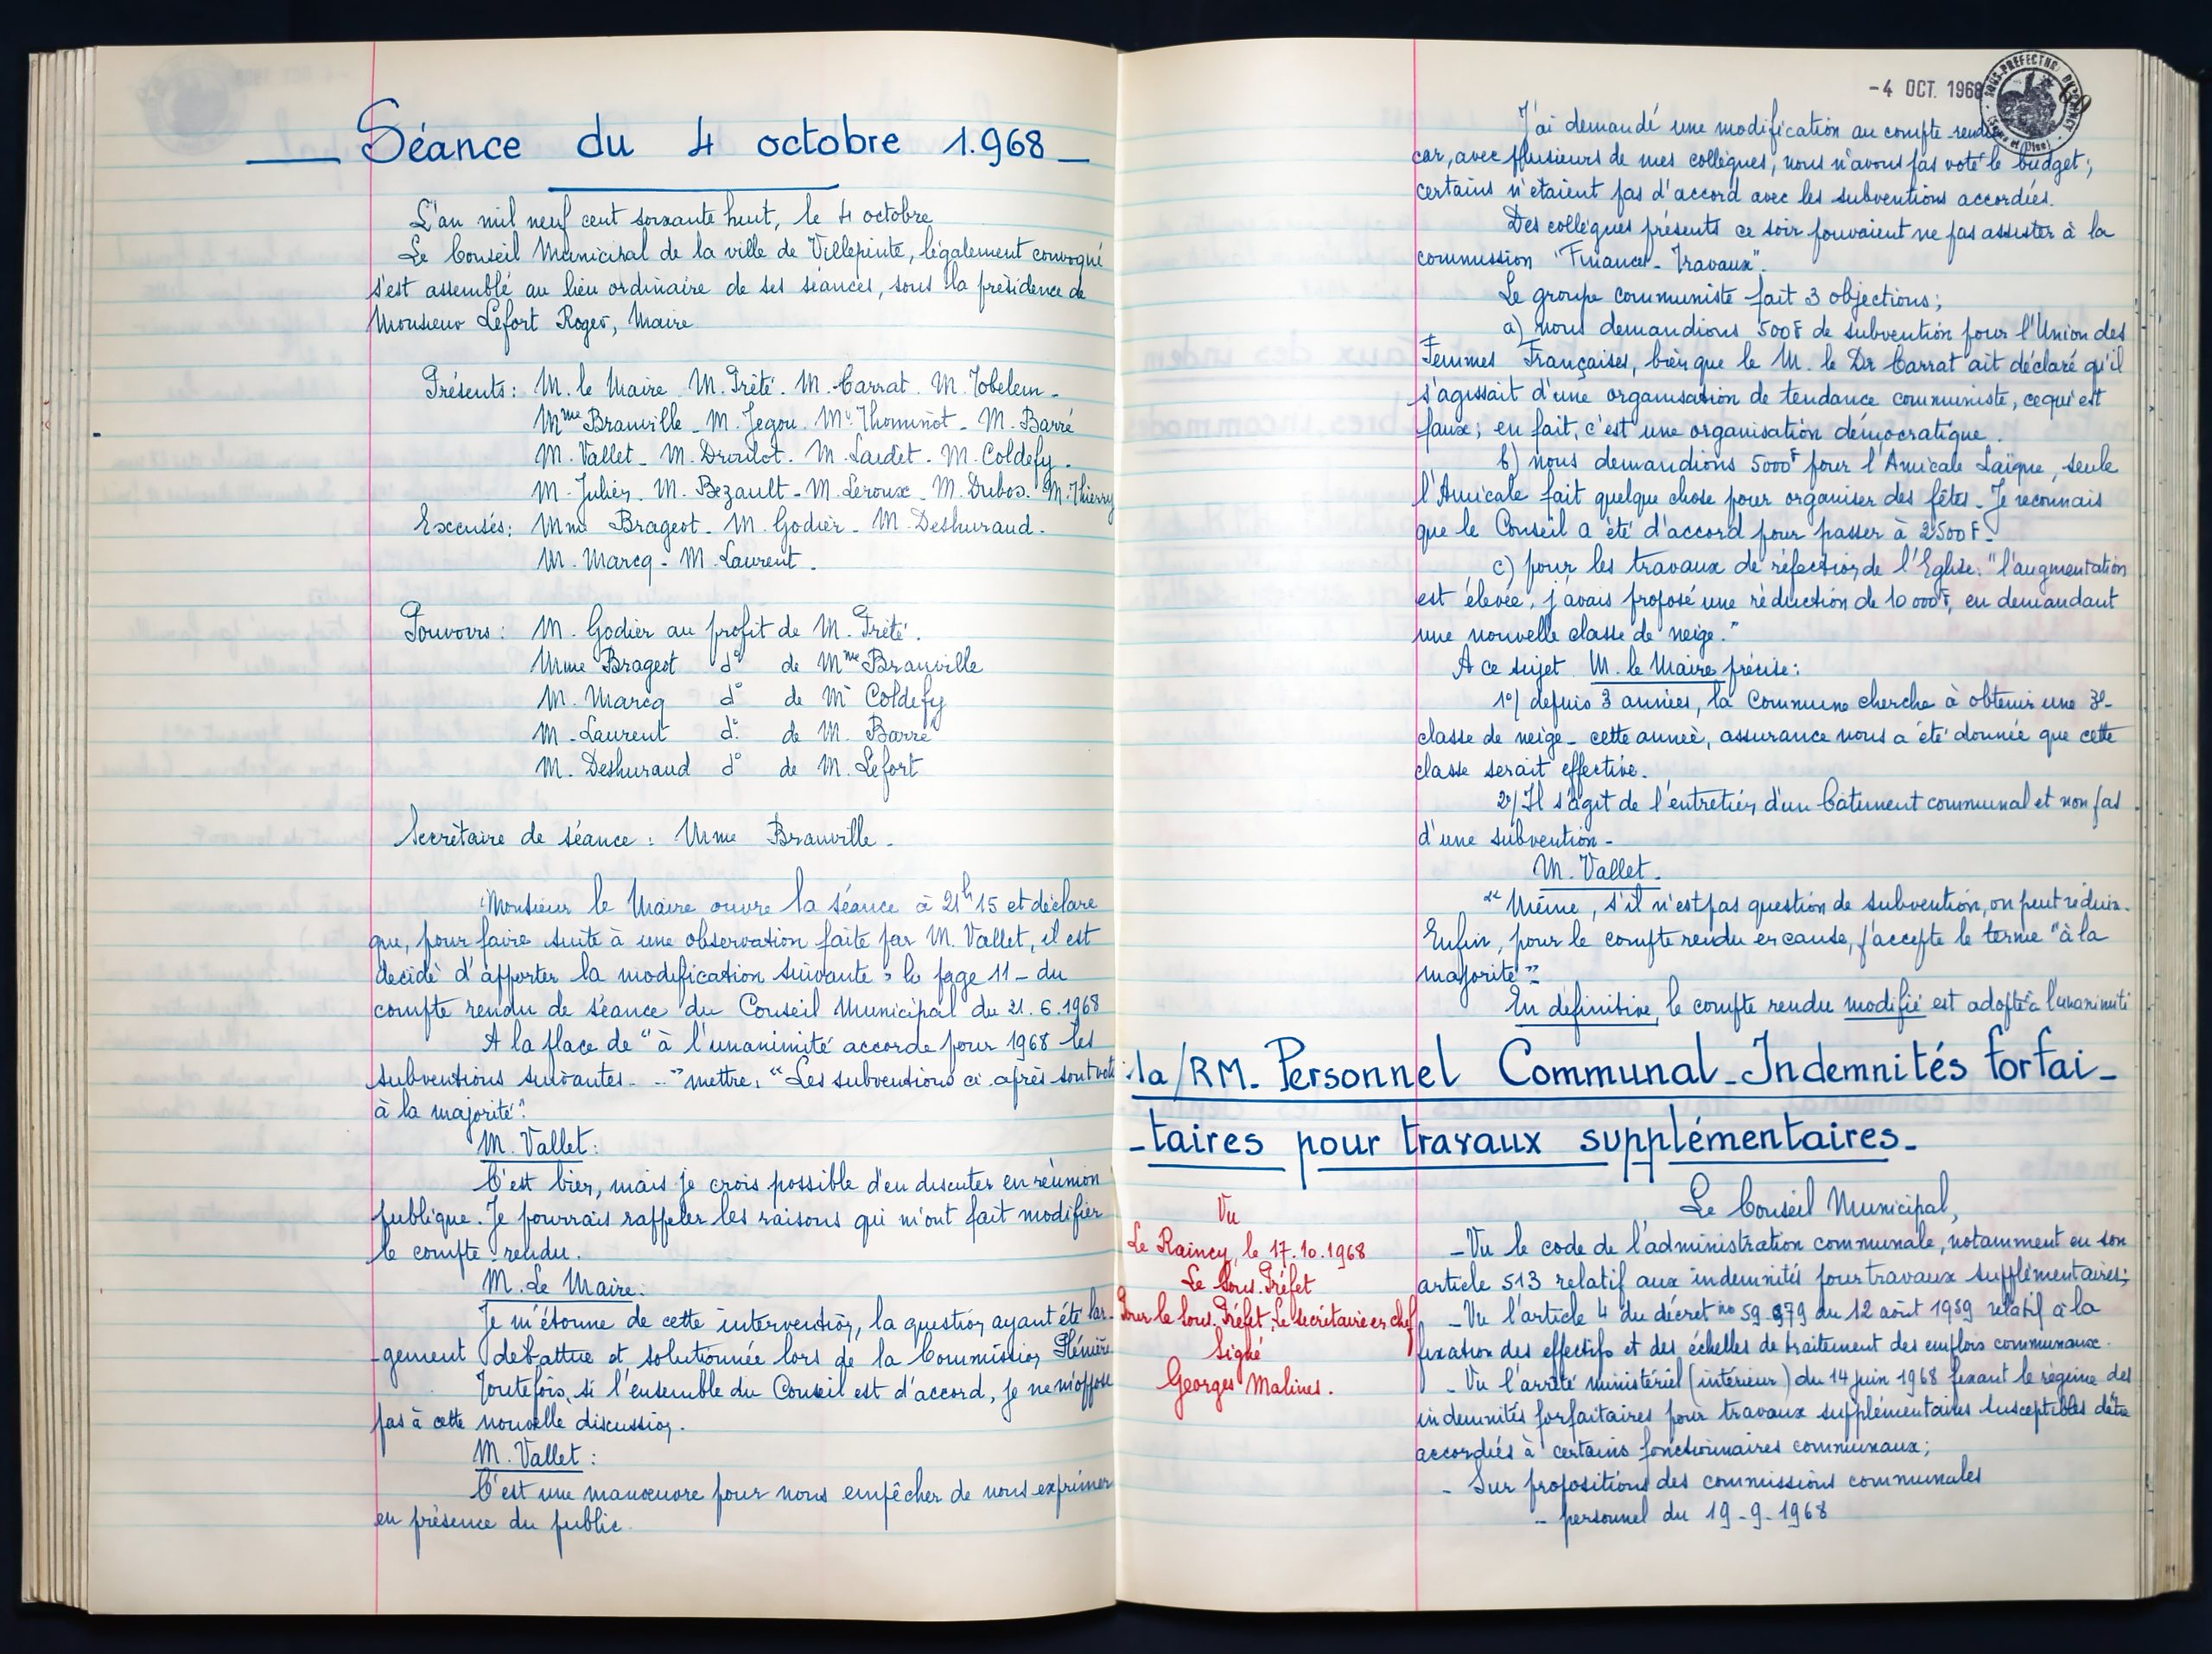 Séance du 4 octobre 1.968
L'an mil neuf cent soixante huit, le 4 octobre
Le Conseil Municipal de la ville de Villepinte, légalement convoqué
s'est assemblé au lieu ordinaire de ses séances, sous la présidence de
Monsieur Lefort Roger, Maire
Présents : M. le Maire. M. Prêté. M. Carrat. M. Tobelem.
Mme Branville - M. Jegou. Mr Thominot - M. Barré
M. Vallet - M. Droulot. M. Laidet. M. Coldefy.
M. Julien. M. Bezault - M. Leroux. M. Dubos. M. Thierry
Excusés : Mme Brageot - M. Godier - M. Deshuraud.
M. Marcq - M. Laurent.
Pouvoirs : M. Godier au profit de M. Prêté.
Mme Brageot d° de Mme Branville
M. Marcq d° de Mr Coldefy
M. Laurent d° de M. Barré
M. Deshuraud d° de M. Lefort
Secrétaire de séance : Mme Branville.
Monsieur le Maire ouvre la séance à 21h15 et déclare
que, pour faire suite à une observation faite par M. Vallet, il est
décidé d'apporter la modification suivante à la page 11 - du
compte rendu de séance du Conseil Municipal du 21.6.1968
A la place de "à l'unanimité accorde pour 1968 les
subventions suivantes..." mettre, "Les subventions ci-après sont votées
à la majorité".
M. Vallet :
C'est bien, mais je crois possible d'en discuter en réunion
publique. Je pourrais rappeler les raisons qui m'ont fait modifier
le compte-rendu.
M. Le Maire :
Je m'étonne de cette intervention, la question ayant été lar-
-gement débattue et solutionnée lors de la Commission Plénière
Toutefois, si l'ensemble du Conseil est d'accord, je ne m'oppose
pas à cette nouvelle discussion.
M. Vallet :
C'est une manoeuvre pour nous empêcher de nous exprimer
en présence du public.
-4 OCT. 1968
J'ai demandé une modification au compte-rendu
car, avec plusieurs de mes collègues, nous n'avons pas voté le budget ;
certains n'étaient pas d'accord avec les subventions accordées.
Des collègues présents ce soir pouvaient ne pas assister à la
commission "Finances - Travaux".
Le groupe communiste fait 3 objections ;
a) nous demandions 500F de subvention pour l'Union des
Femmes Françaises, bien que le M. le Dr Carrat ait déclaré qu'il
s'agissait d'une organisation de tendance communiste, ce qui est
faux ; en fait, c'est une organisation démocratique.
b) nous demandions 5000F pour l'Amicale Laïque, seule
l'Amicale fait quelque chose pour organiser des fêtes - Je reconnais
que le Conseil a été d'accord pour passer à 2500F -
c) pour les travaux de réfection de l'Eglise. "l'augmentation
est élevée, j'avais proposé une réduction de 10 000F, en demandant
une nouvelle classe de neige."
A ce sujet M. le Maire précise :
1°/ depuis 3 années, la Commune cherche à obtenir une 3e
classe de neige - cette année, assurance nous a été donnée que cette
classe serait effective.
2°/ Il s'agit de l'entretien d'un bâtiment communal et non pas
d'une subvention -
M. Vallet.
"Même, s'il n'est pas question de subvention, on peut réduire.
Enfin, pour le compte rendu en cause, j'accepte le terme "à la
majorité" -
En définitive, le compte rendu modifié est adopté à l'unanimité
1a/RM. Personnel Communal - Indemnités forfai-
-taires pour travaux supplémentaires -
Vu
Le Raincy, le 17.10.1968
Le Sous-Préfet
Pour le Sous-Préfet, Le Secrétaire en chef
Signé
Georges Malines.
Le Conseil Municipal,
- Vu le code de l'administration communale, notamment en son
article 513 relatif aux indemnités pour travaux supplémentaires ;
- Vu l'article 4 du décret no 59.979 du 12 août 1959 relatif à la
fixation des effectifs et des échelles de traitement des emplois communaux.
- Vu l'arrêté ministériel (intérieur) du 14 juin 1968 fixant le régime des
indemnités forfaitaires pour travaux supplémentaires susceptibles d'être
accordées à certains fonctionnaires communaux ;
- Sur propositions des commissions communales
- personnel du 19-9-1968